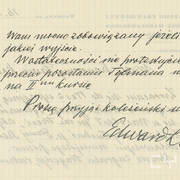 Wam mocno zobowiązany jeżeli
jakieś wyjście.
W ostateczności nie protestuję
przeciw pozostaniu
na II kursie
Proszę przyjąć koleżeński
Edward